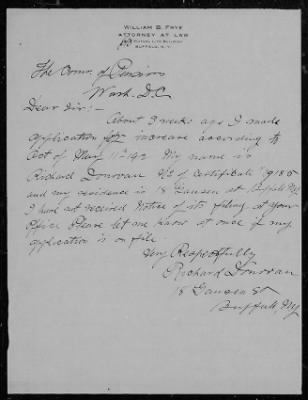 WILLIAM B. FRYE
ATTORNEY AT LAW
BUFFALO, N. Y.
The Comr. of Pensions
Wash. D.C
Dear Sir:-
About 3 weeks ago I made
application for increase according to
Act of May 11th 1912 My name is
Richard Donovan No of Certificate
and my residence is 18 Gansen St Buffalo NY
I have not received Notice of its filing at your
Office Please let me know at once if my
application is on file.
Very Respectfully
Richard Donovan
18 Gansen St
Buffalo, NY